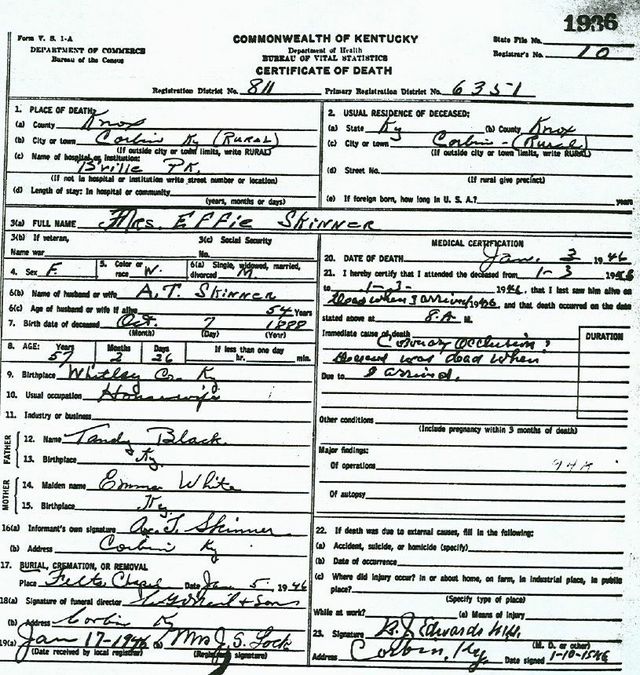 1936
Form V. S. 1-A
DEPARTMENT OF COMMERCE
Bureau of the Census
COMMONWEALTH OF KENTUCKY
Department of Health
BUREAU OF VITAL STATISTICS
CERTIFICATE OF DEATH
State File No.
Registrar's No. 10
Registration District No. 811 Primary Registration District No. 6351
1. PLACE OF DEATH:
(a) County Knox
(b) City or town Corbin Ky (RURAL)
(If outside city or town limits, write RURAL)
(c) Name of hospital or institution:
B'ville PK.
(If not in hospital or institution write street number or location)
(d) Length of stay: In hospital or community
(years, months or days)
2. USUAL RESIDENCE OF DECEASED:
(a) State Ky (b) County Knox
(c) City or town Corbin - (Rural)
(If outside city or town limits, write RURAL)
(d) Street No.
(If rural give precinct)
(e) If foreign born, how long in U. S. A.? years
3(a) FULL NAME Mrs. Effie Skinner
3(b) If veteran,
Name war
3(c) Social Security
No.
4. Sex F. 5. Color or race W. 6(a) Single, widowed, married, divorced M
6(b) Name of husband or wife A. T. Skinner
6(c) Age of husband or wife if alive 54 Years
7. Birth date of deceased Oct. 7 1888
(Month) (Day) (Year)
8. AGE: Years Months Days If less than one day
57 2 26 hr. min.
9. Birthplace Whitley Co. Ky
10. Usual occupation Housewife
11. Industry or business
FATHER
12. Name Tandy Black
13. Birthplace Ky.
MOTHER
14. Maiden name Emma White
15. Birthplace Ky.
16(a) Informant's own signature A. T. Skinner
(b) Address Corbin Ky
17. BURIAL, CREMATION, OR REMOVAL
Place Felts Chapel Date Jan 5. 1946
18(a) Signature of funeral director & Sons
(b) Address Corbin Ky
19(a) Jan 17-1946 (b) Mrs J. S. Lock
(Date received by local registrar) (Registrar's signature)
MEDICAL CERTIFICATION
20. DATE OF DEATH Jan. 3 1946
21. I hereby certify that I attended the deceased from 1-3 1946
to 1-3- 1946, that I last saw him alive on
Dead when I arrived 1946 and that death occurred on the date
stated above at 8.A M.
Immediate cause of death DURATION
Coronary Occlusion?
Deceased was dead when
Due to I arrived.
Other conditions
(Include pregnancy within 3 months of death)
Major findings:
Of operations
Of autopsy
22. If death was due to external causes, fill in the following:
(a) Accident, suicide, or homicide (specify)
(b) Date of occurrence
(c) Where did injury occur? In or about home, on farm, in industrial place, in public
place?
(Specify type of place)
While at work? (e) Means of injury
23. Signature Edwards
(M. D. or other)
Address Corbin, Ky. Date signed 1-10-1946